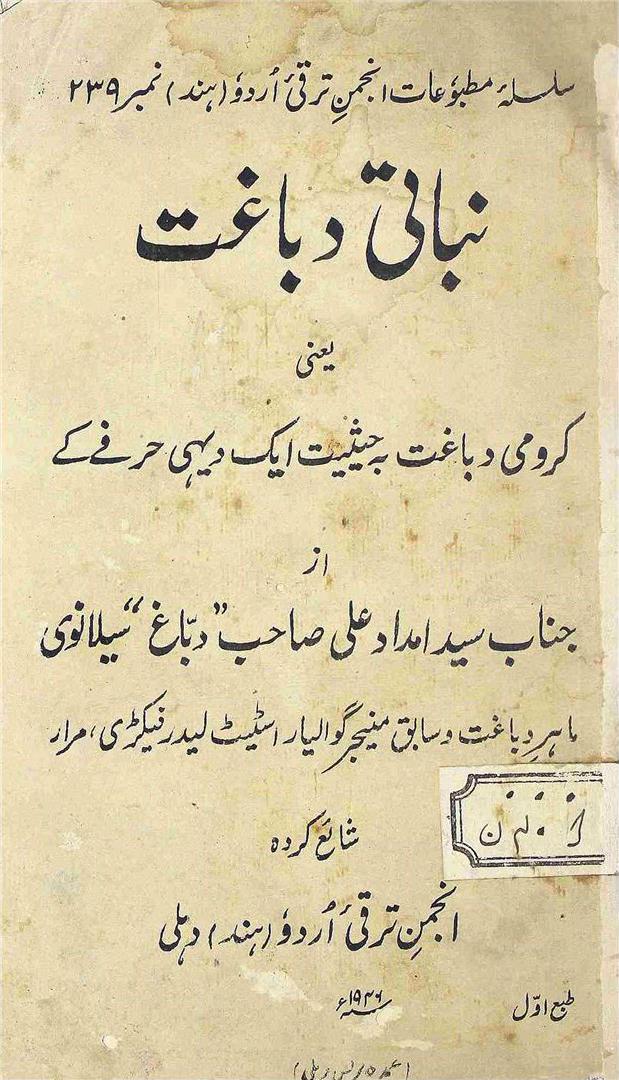 سلسلۂ مطبوعات انجمنِ ترقیٔ اُردوٗ (ہند) نمبر ۲۳۹
نباتی دباغت
یعنی
کرومی دباغت بہ حیثیت ایک دیہی حرفے کے
از
جناب سید امداد علی صاحب "دبّاغ" سیلانوی
ماہرِ دباغت و سابق منیجر گوالیار اسٹیٹ لیدر فیکڑی، مرار
شائع کردہ
انجمنِ ترقیٔ اُردوٗ (ہند) دہلی
طبع اوّل
سنہ ۱۹۴۶ء